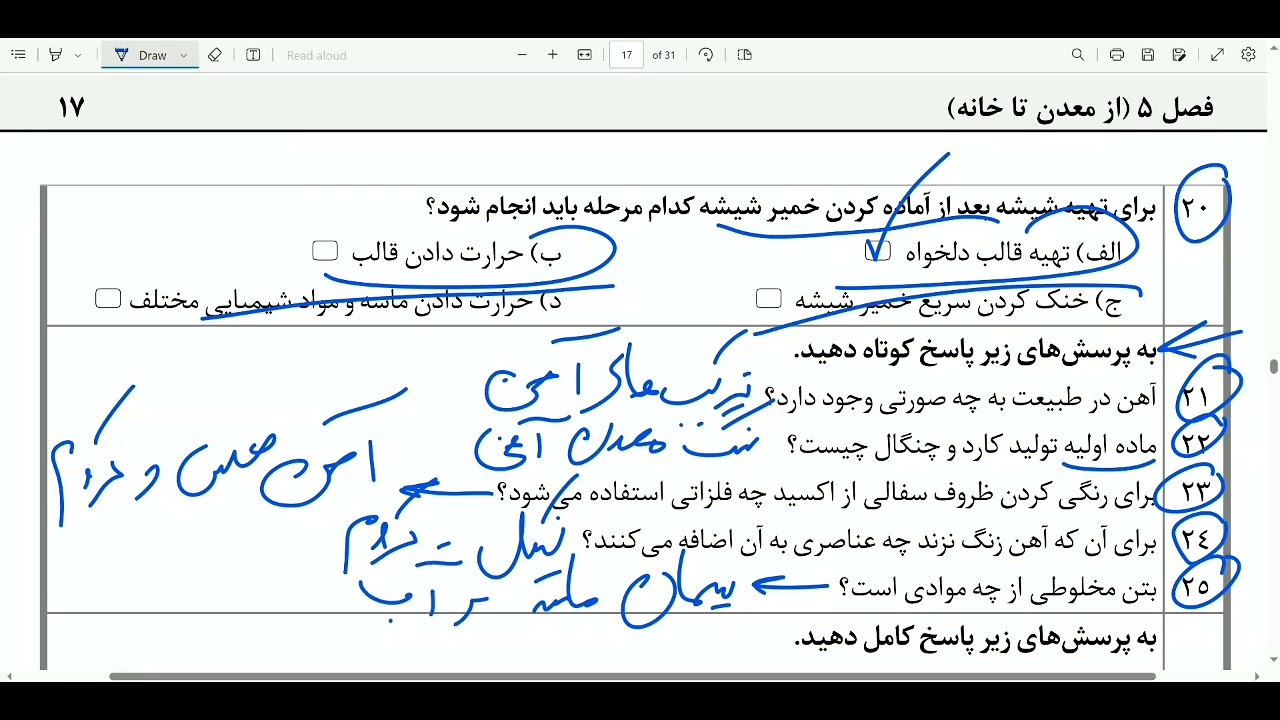 Draw
Read aloud
17 of 31
فصل ۵ (از معدن تا خانه) ۱۷
۲۰ برای تهیه شیشه بعد از آماده کردن خمیر شیشه کدام مرحله باید انجام شود؟
الف) تهیه قالب دلخواه ب) حرارت دادن قالب
ج) خنک کردن سریع خمیر شیشه د) حرارت دادن ماسه و مواد شیمیایی مختلف
به پرسش‌های زیر پاسخ کوتاه دهید.
۲۱ آهن در طبیعت به چه صورتی وجود دارد؟ ترکیب های آهن
۲۲ ماده اولیه تولید کارد و چنگال چیست؟ سنگ معدن آهن
۲۳ برای رنگی کردن ظروف سفالی از اکسید چه فلزاتی استفاده می‌شود؟ آهن مس و کروم
۲۴ برای آن که آهن زنگ نزند چه عناصری به آن اضافه می‌کنند؟ نیکل - کروم
۲۵ بتن مخلوطی از چه موادی است؟ سیمان ماسه - آب
به پرسش‌های زیر پاسخ کامل دهید.